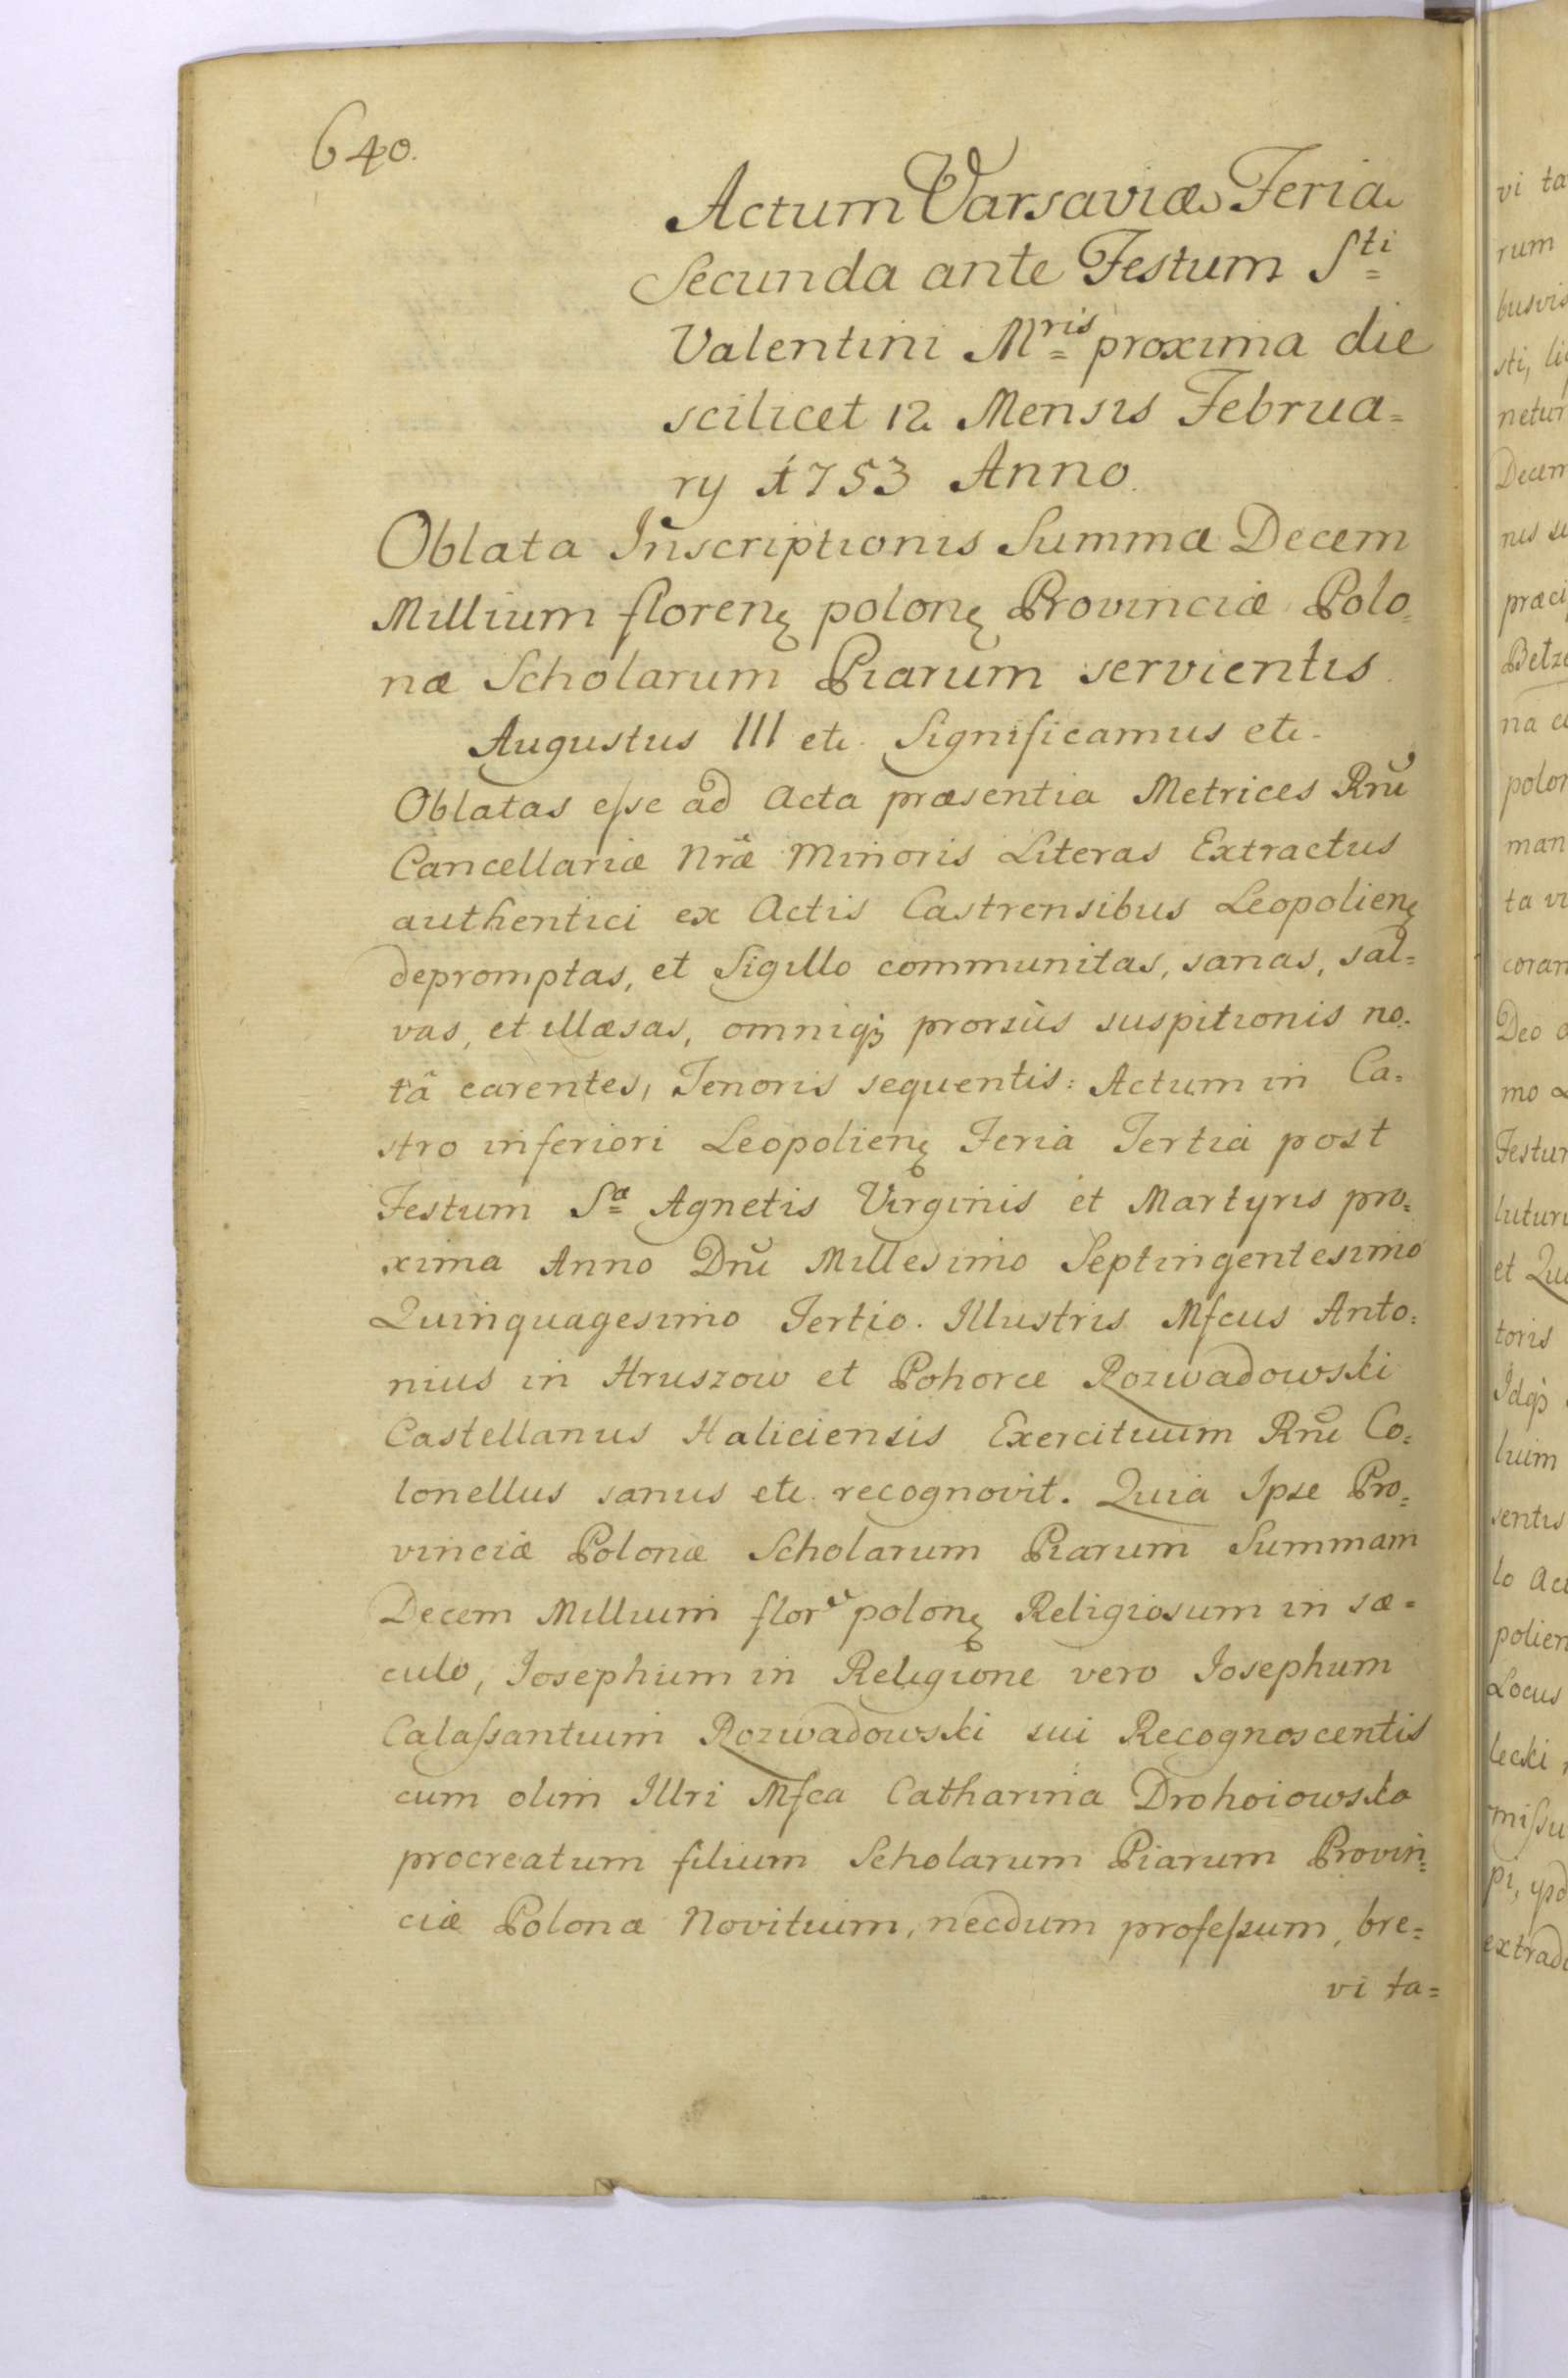 640.
Actum Varsaviæ Feria
Secunda ante Festum S^ti
Valentini M^ris proxima die
scilicet 12 Mensis Februa=
ry 1753 Anno.
Oblata Inscriptionis Summæ Decem
Millium florenę polonę Provinciæ Polo=
næ Scholarum Piarum servientis.
Augustus III etc. Significamus etc.
Oblatas eſse ad Acta præsentia Metrices Rnũ
Cancellariæ Nrã Minoris Literas Extractus
authentici ex Actis Castrensibus Leopolienę
depromptas, et Sigillo communitas, sanas, sal=
vas, et illæsas, omniqȝ prorsùs suspitionis no=
tâ carentes, Tenoris sequentis: Actum in Ca=
stro inferiori Leopolienę Feria Tertia post
Festum S^æ Agnetis Virginis et Martyris pro=
xima Anno Dnĩ Millesimo Septingentesimo
Quinquagesimo Tertio. Illustris Mfcus Anto=
nius in Hruszow et Pohorce Rozwadowski
Castellanus Haliciensis Exercituum Rnũ Co=
lonellus sanus etc. recognovit. Quia Ipse Pro=
vinciæ Polonæ Scholarum Piarum Summam
Decem Millium flor^e polonę Religiosum in sæ=
culo, Josephum in Religione vero Josephum
Calaſsantium Rozwadowski sui Recognoscentis
cum olim Illri Mfca Catharina Drohoiowska
procreatum filium Scholarum Piarum Provin=
ciæ Polonæ Novitium, necdum profeſsum, bre=
vi ta=
vi ta
rum
busvis
sti, li
netur
Decem
præci
Betz
polon
man
coram
Deo
mo
Festum
et Qu
toris
Idqȝ
luim
sentis
lo Act
polien
Locus
lecki
miſsu
extrad